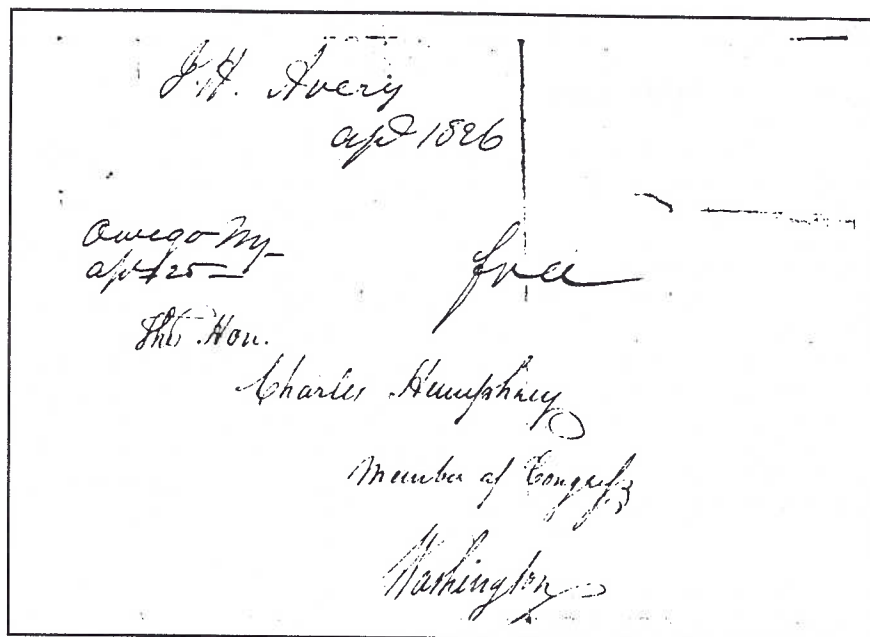 J. H. Avery
apl 1826
Owego Ny
apl 25
free
The Hon.
Charles Humphrey
Member of Congress
Washington